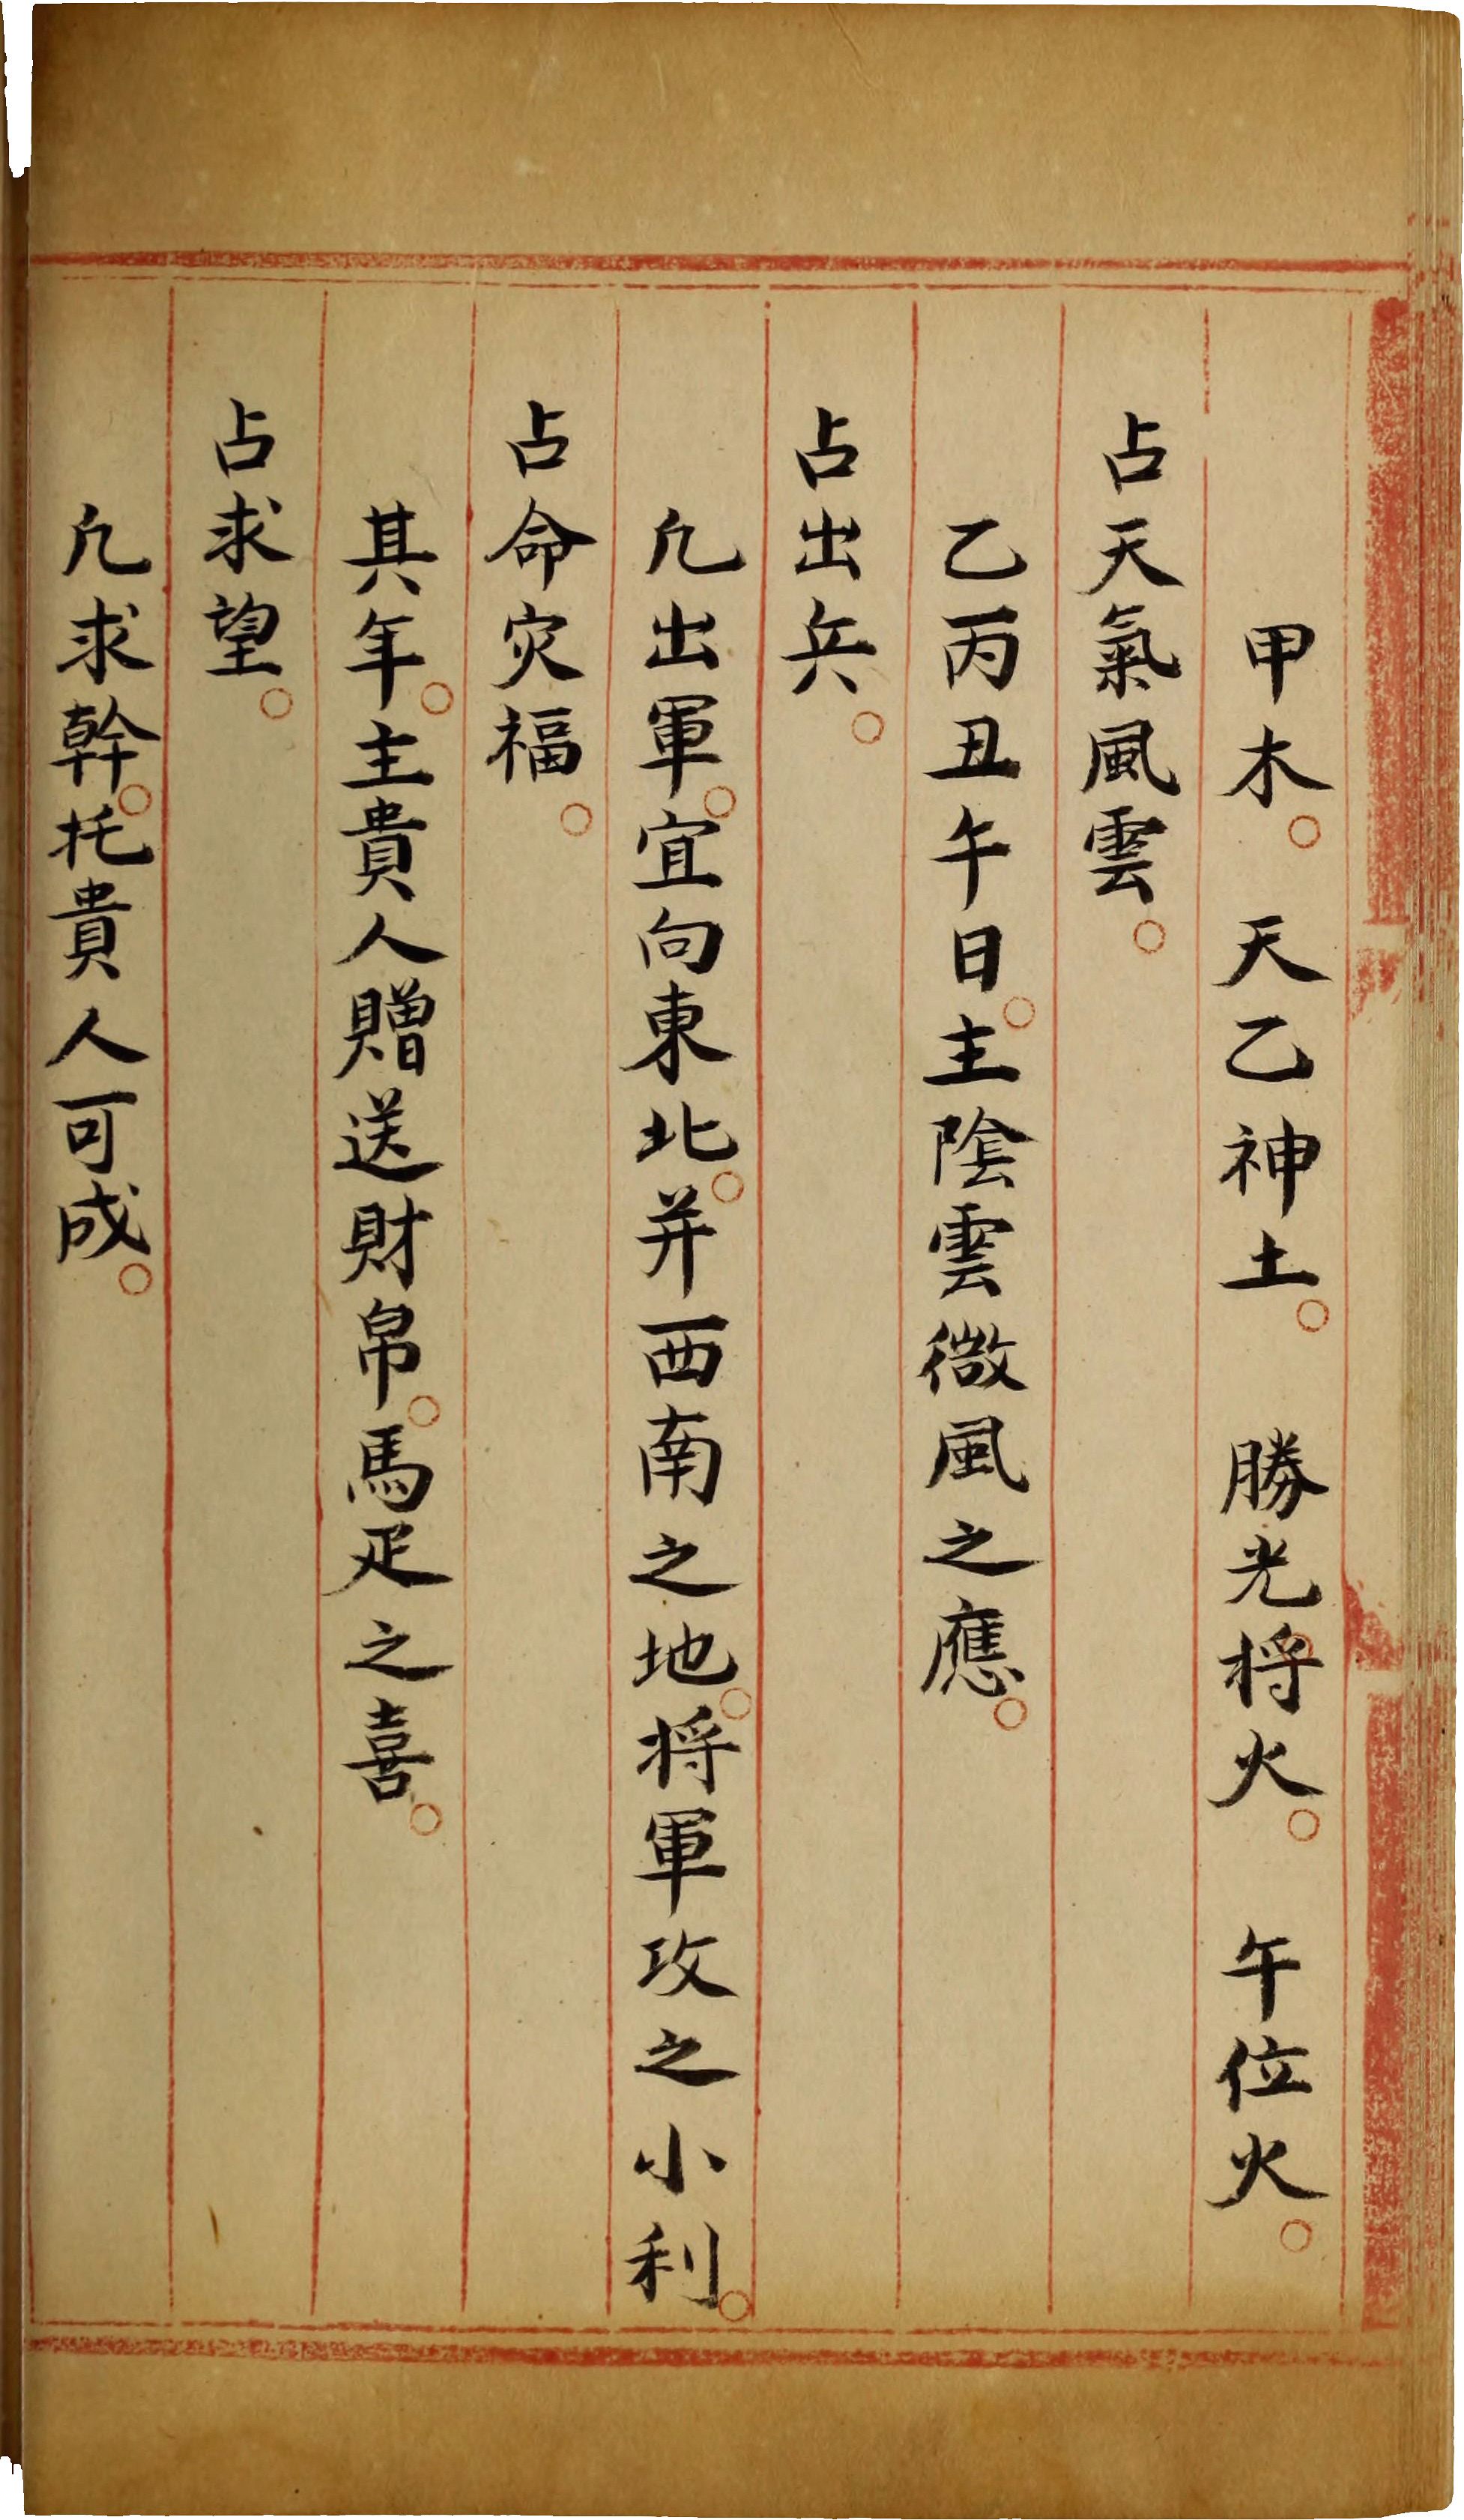 甲木。天乙神土。勝光将火。午位火。
占天氣風雲。
乙丙丑午日。主陰雲微風之應。
占出兵。
凢出軍。宜向東北。并西南之地。将軍攻之小利。
占命灾福。
其年。主貴人贈送財帛。馬疋之喜。
占求望。
凢求幹。托貴人可成。